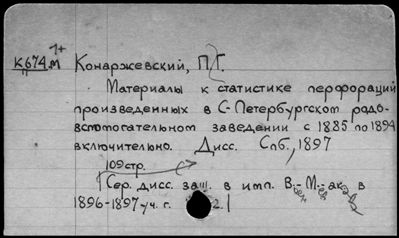 1+
К674.м Конаржевский, П.Г.
Материалы к статистике перфораций
произведенных в С-Петербургском родо-
вспомогательном заведении с 1885 по 1894
включительно. Дисс. Спб., 1897
109стр.
[Сер. дисс. защ. в имп. В.-М.-ак. в
1896-1897 уч. г. 2.]